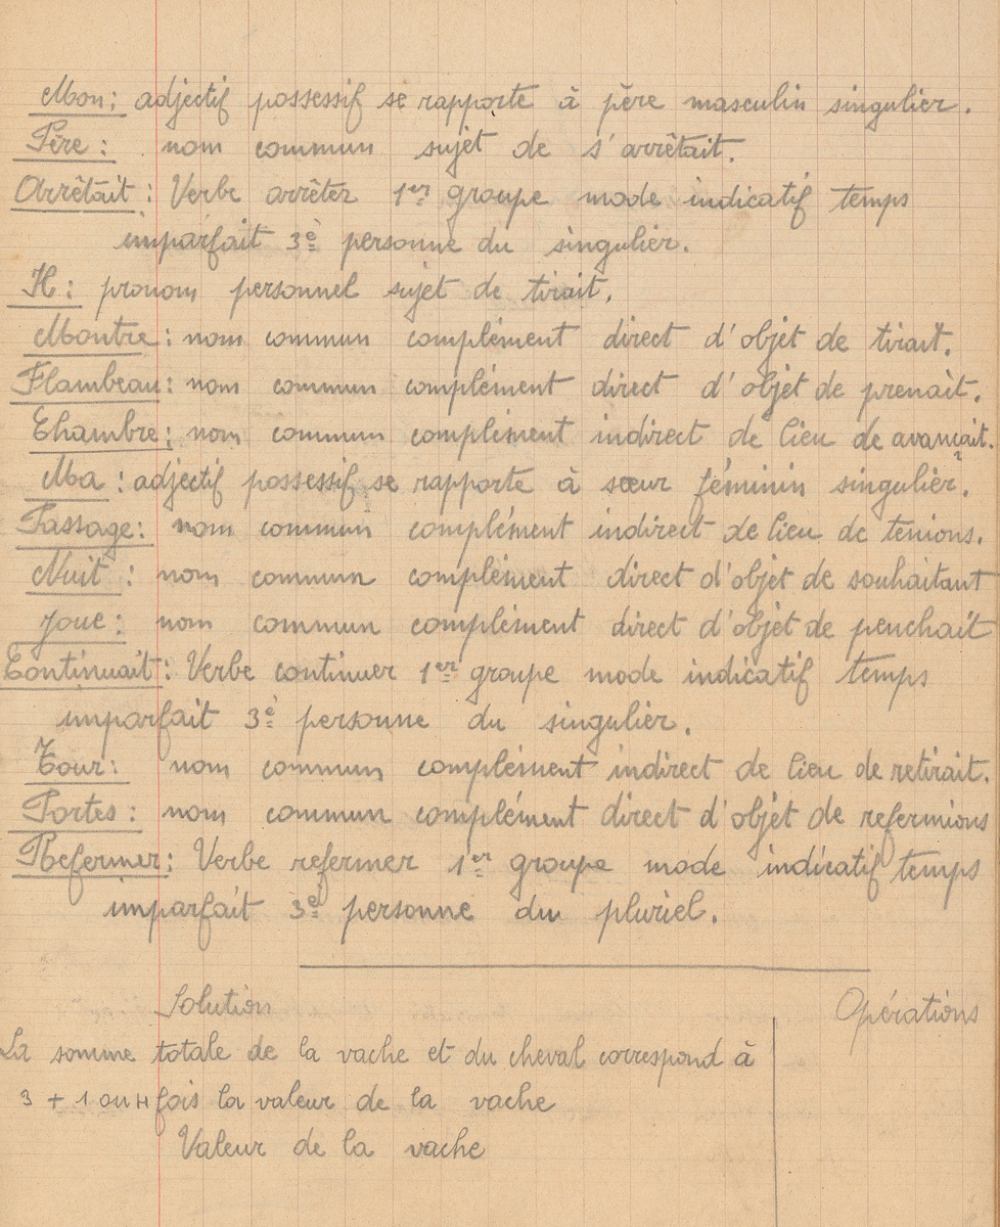 Mon : adjectif possessif se rapporte à père masculin singulier.
Père : nom commun sujet de s'arrêtait.
Arrêtait : Verbe arrêter 1er groupe mode indicatif temps
imparfait 3è personne du singulier.
Il : pronom personnel sujet de tirait.
Montre : nom commun complément direct d'objet de tirait.
Flambeau : nom commun complément direct d'objet de prenait.
Chambre : nom commun complément indirect de lieu de avançait.
Ma : adjectif possessif se rapporte à sœur féminin singulier.
Passage : nom commun complément indirect de lieu de tenions.
Nuit : nom commun complément direct d'objet de souhaitant
Joue : nom commun complément direct d'objet de penchait
Continuait : Verbe continuer 1er groupe mode indicatif temps
imparfait 3è personne du singulier.
Tour : nom commun complément indirect de lieu de retirait.
Portes : nom commun complément direct d'objet de refermions
Refermer : Verbe refermer 1er groupe mode indicatif temps
imparfait 3è personne du pluriel.
Solution Opérations
La somme totale de la vache et du cheval correspond à
3 + 1 ou 4 fois la valeur de la vache
Valeur de la vache